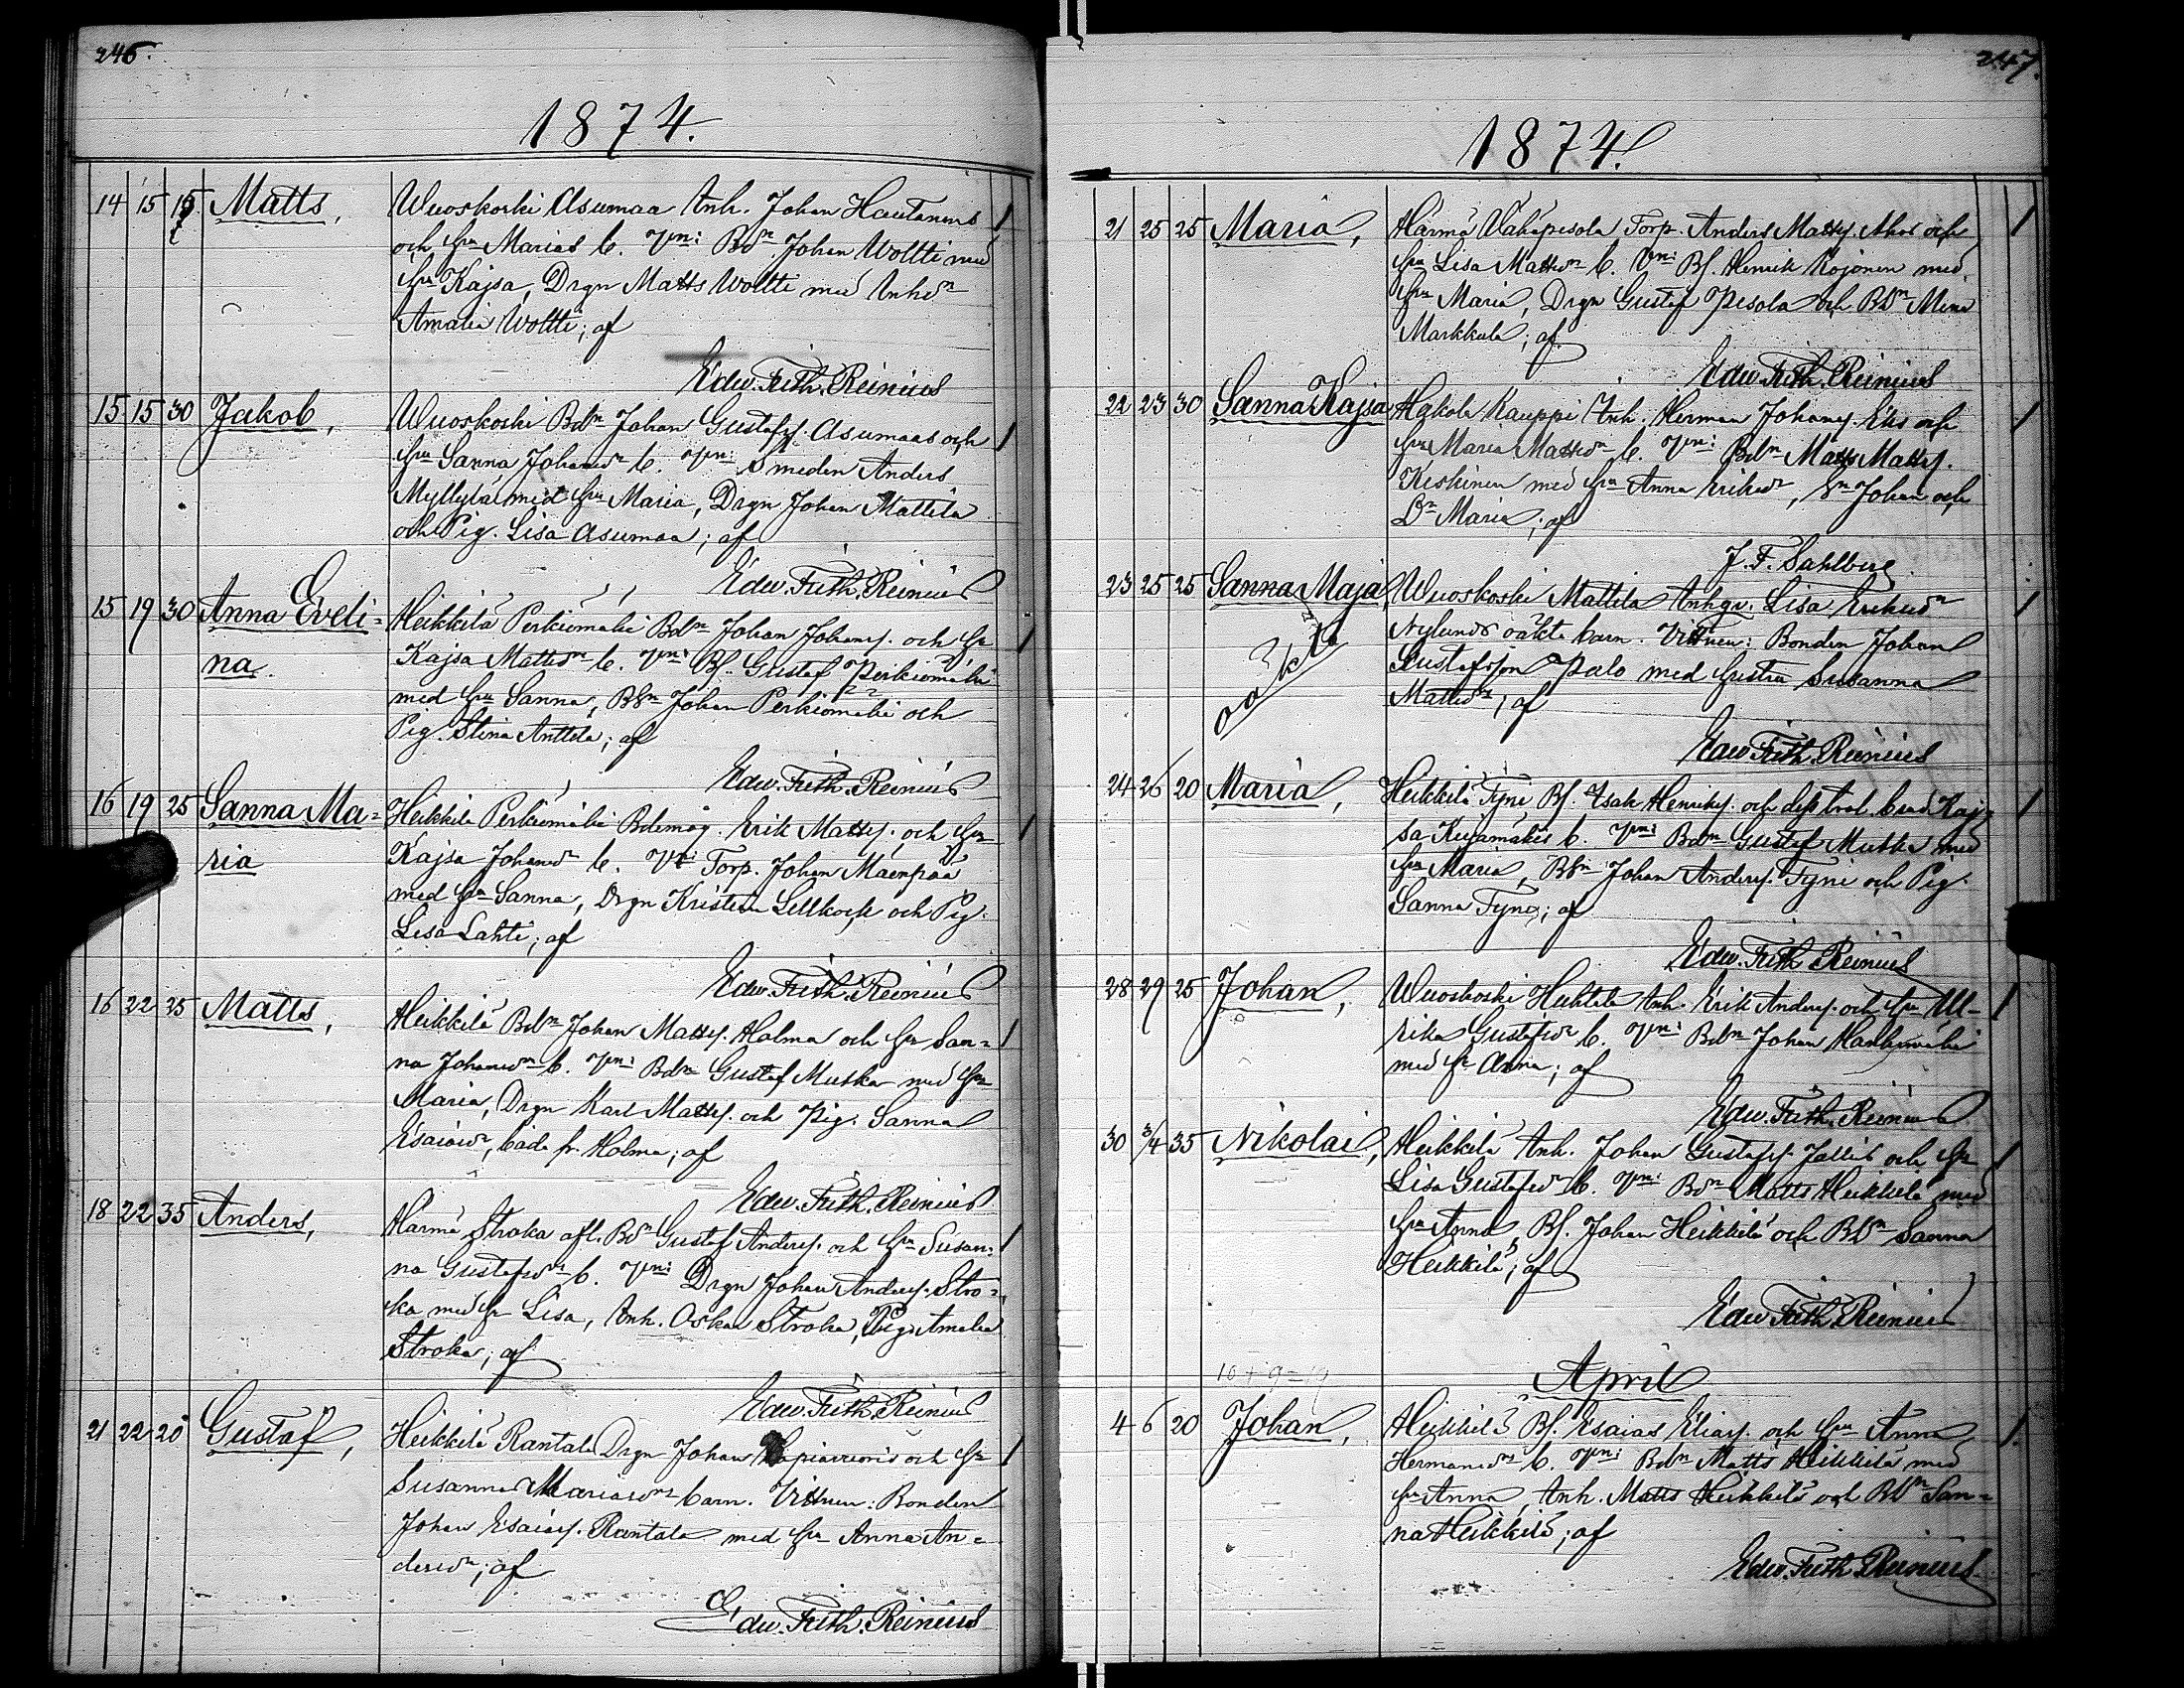 246.
1874.
14 15 15 Matts, Wuoskoski Asumaa Inh. Johan Hautanens
och hu Marias b. Vn: Bdn Johan Woltti med
hu Kajsa, Drgn Matts Woltti med Inhdr
Amalia Woltti; af
Edw. Frith. Reinius
15 15 30 Jakob, Wuoskoski Bdn Johan Gustafss. Asumaas och
hu Sanna Johansdr b. Vn: Smeden Anders
Myllylä med hu Maria, Drgn Johan Mattila
och Pig. Lisa Asumaa; af
Edw. Frith. Reinius
15 19 30 Anna Eveli- Heikkilä Perkiömäki Bdn Johan Johanss. och hu
na. Kajsa Mattsdr b. Vn: Bs. Gustaf Perkiömäki
med hu Sanna, BSn Johan Perkiömäki och
Pig. Stina Anttila; af
Edw. Frith. Reinius
16 19 25 Sanna Ma- Heikkilä Perkiömäki Bdemåg. Erik Matss. och hu
ria Kajsa Johansdr b. Vn: Torp. Johan Mäenpää
med hu Sanna, Drgn Kristian Sellkock och Pig.
Lisa Lahti; af
Edw. Frith. Reinius
16 22 25 Matts, Heikkilä Bdn Johan Matss. Holma och hu San-
na Johansdr b. Vn: Bdn Gustaf Mutka med hu
Maria, Drgn Karl Matss. och Pig. Sanna
Esaiasdr, båda fr. Holma; af
Edw. Frith. Reinius
18 22 35 Anders, Härmä Stroka afl. Bdn Gustaf Anderss. och hu Susan-
na Gustafsdr b. Vn: Drgn Johan Anderss. Stro-
ka med hu Lisa, Inh. Oskar Stroka, Pig. Amalia
Stroka; af
Edw. Frith. Reinius
21 22 20 Gustaf, Heikkilä Rantala Drgn Johan och hu
Susanna Mariasdrs barn. Vittnen: Bonden
Johan Esaiass. Rantala med hu Anna An-
dersdr; af
Edw. Frith. Reinius
247.
1874.
21 25 25 Maria, Härmä Wähäpesola Torp. Anders Matss. Ahos och
hu Lisa Mattsdr b. Vn: Bs. Henrik Rojonen med
hu Maria, Drgn Gustaf Pesola och BDr Mina
Markkula; af
Edw. Frith. Reinius
22 23 30 Sanna Kajsa Hakola Kauppi Inh. Herman Johanss. Eks och
hu Maria Mattsdr b. Vn: Bdn Matts Matss.
Keskinen med hu Anna Eriksdr, Sn Johan och
Dr Maria; af
J. F. Sahlberg
23 25 25 Sanna Maja, Wuoskoski Mattila Inhqv. Lisa Eriksdr
oäkta Nylunds oäkta barn. Vittnen: Bonden Johan
Gustafsson Palo med hustru Susanna
Mattsdr; af
Edw. Frith. Reinius
24 26 20 Maria, Heikkilä Tyni Bs. Isak Henrikss. och dess trol. brud Kaj-
sa Kujamäkis b. Vn: Bdn Gustaf Mutka med
hu Maria, BSn Johan Anderss. Tyni och Pig.
Sanna Tyni; af
Edw. Frith. Reinius
28 29 25 Johan, Wuoskoski Huhtala Inh. Erik Anderss. och hu Ul-
rika Gustafsdr b. Vn: Bdn Johan Harkimäki
med hu Anna; af
Edw. Frith. Reinius
30 3/4 35 Nikolai, Heikkilä Inh. Johan Gustafss. Jallis och hu
Lisa Gustafsdr b. Vn: Bdn Matts Heikkilä med
hu Anna, Bs. Johan Heikkilä och BDr Sanna
Heikkilä; af
Edw. Frith. Reinius
10 + 9 = 19
April
4 6 20 Johan, Heikkilä Bs. Esaias Eliass. och hu Anna
Hermansdr b. Vn: Bdn Matts Heikkilä med
hu Anna, Inh. Matts Heikkilä och BDr San-
na Heikkilä; af
Edw. Frith. Reinius